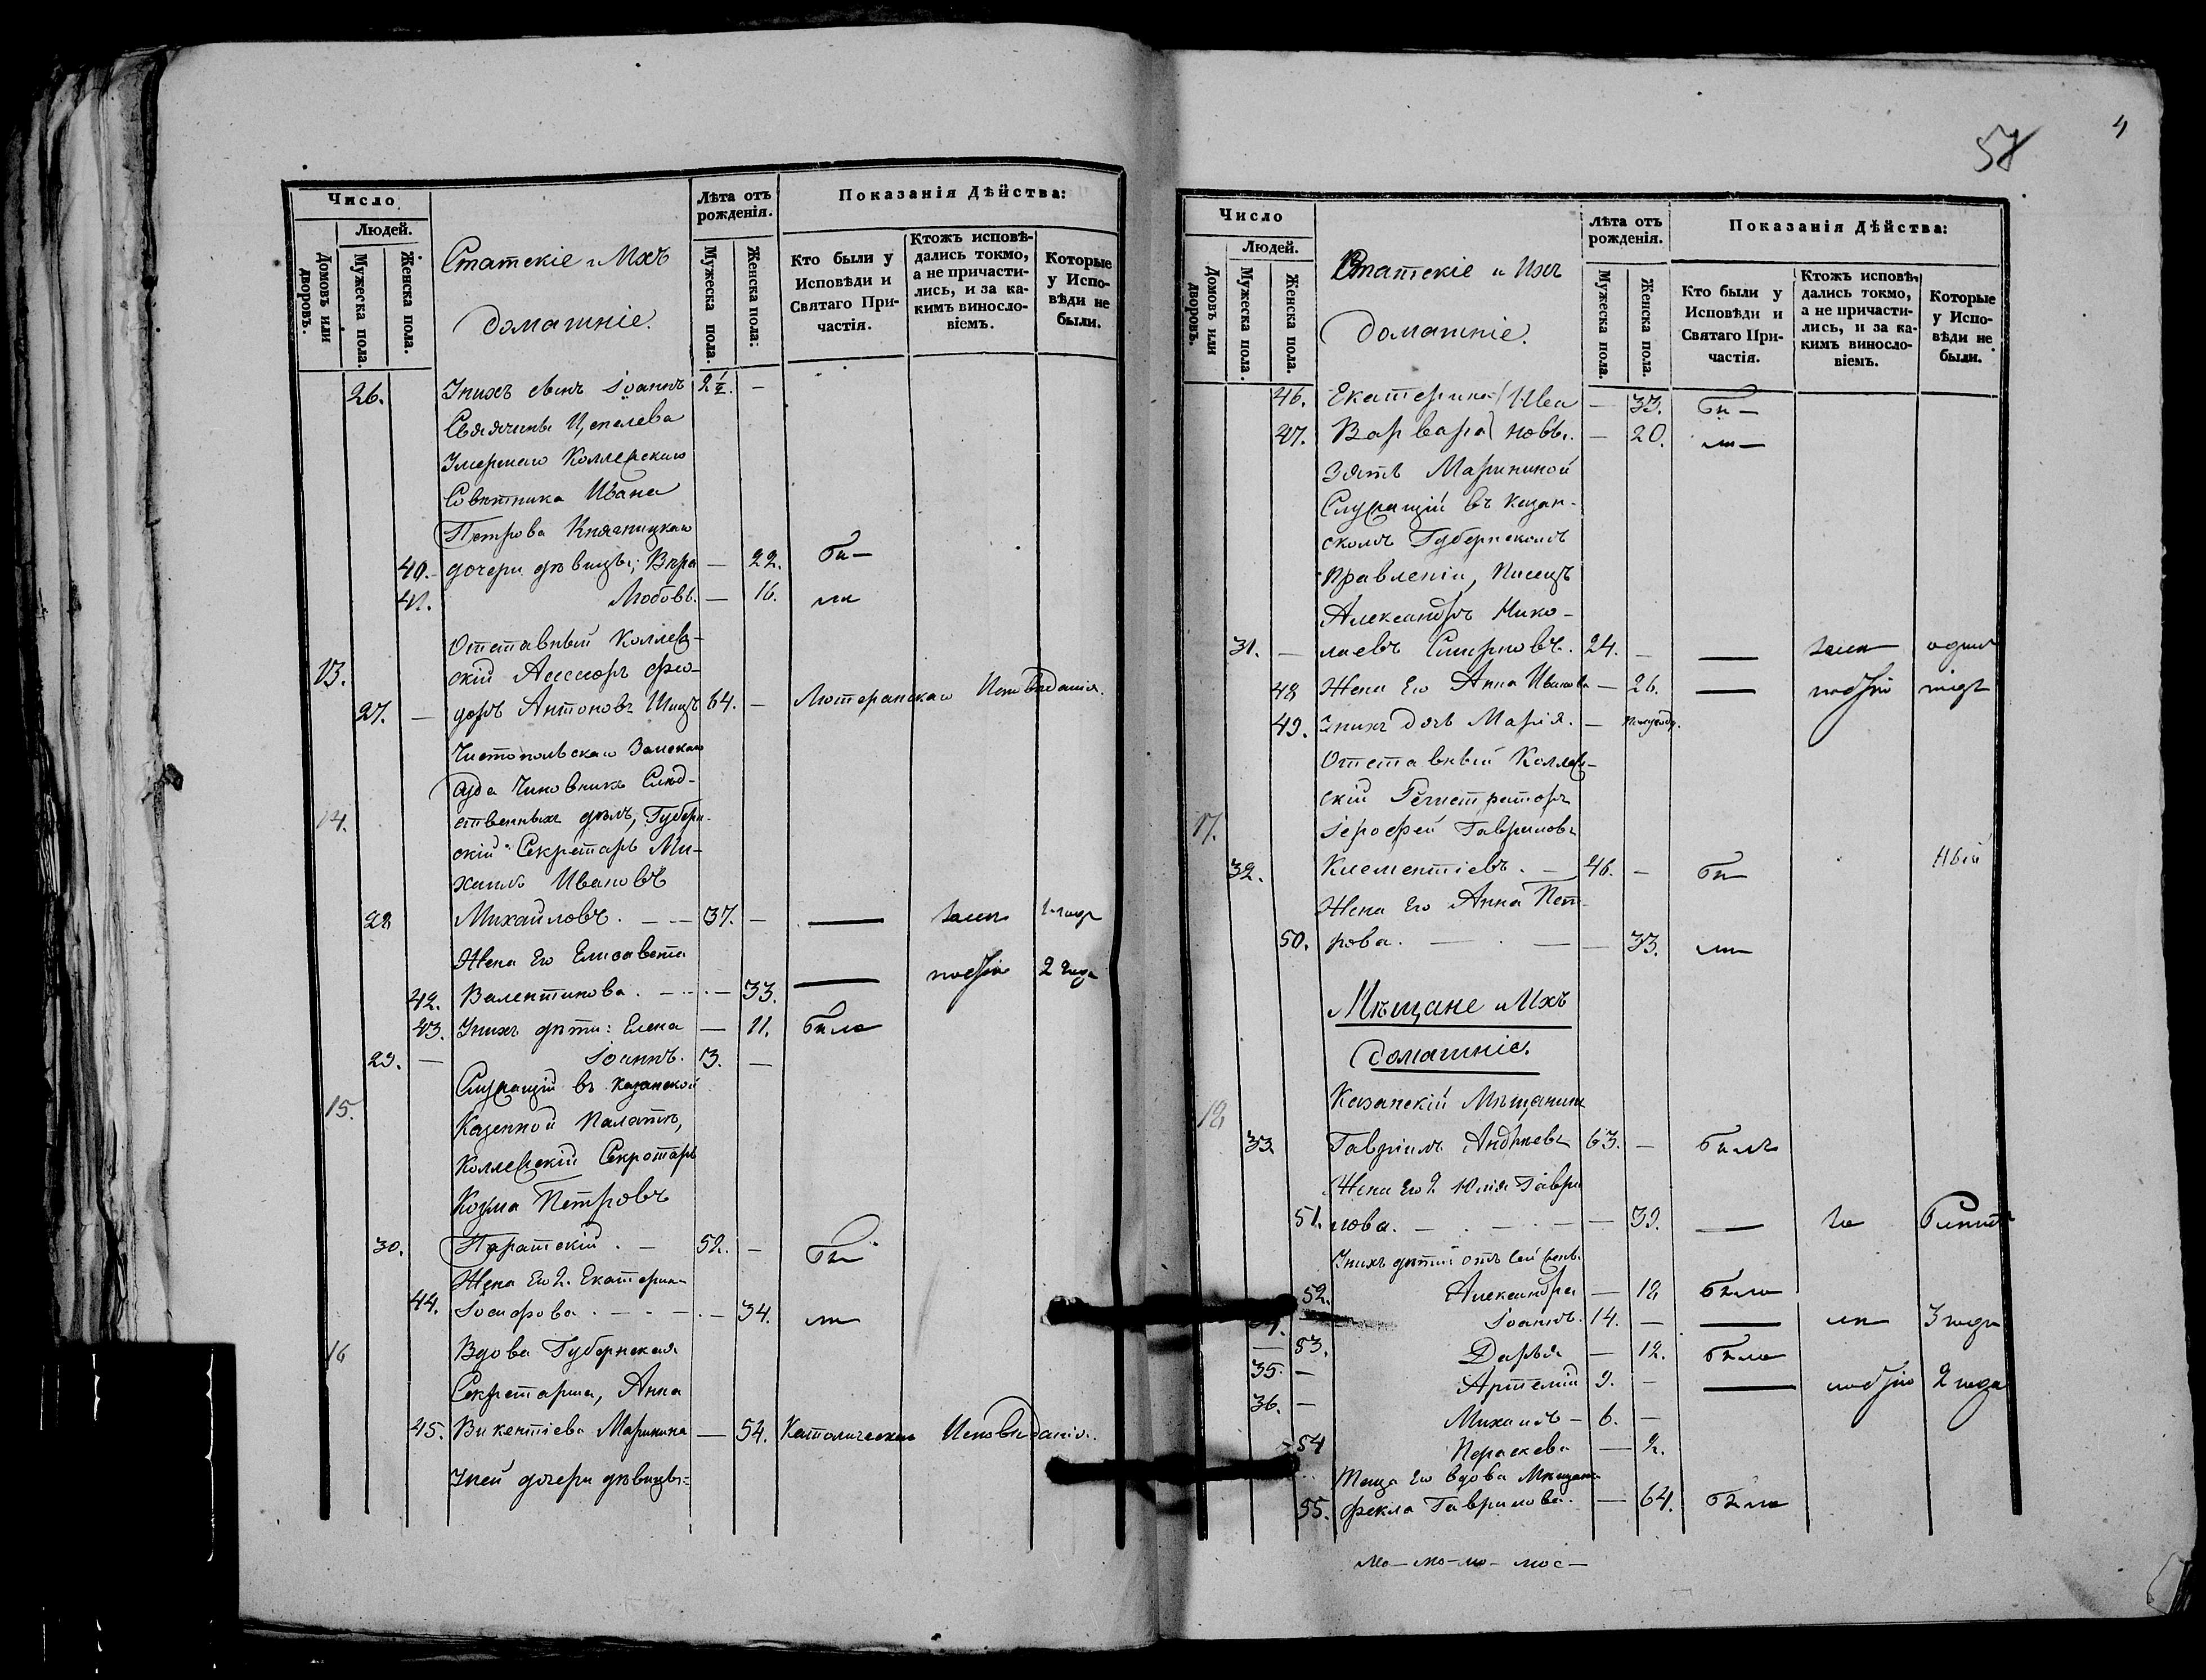 Число
Людей.
Домовъ или дворовъ.
Мужеска пола.
Женска пола.
Статскіе и Ихъ
домашніе.
Лѣта отъ рожденія.
Мужеска пола.
Женска пола.
Показанія Дѣйства:
Кто были у Исповѣди и Святаго При-частія.
Ктожъ исповѣ-дались токмо, а не причасти-лись, и за ка-кимъ винословіемъ.
Которые у Испо-вѣди не были.
26. Унихъ сынъ Іоаннъ 2 —
Умершаго Коллежскаго
Совѣтника Ивана
Петрова
40. дочери дѣвицы; Вѣра — 22. бы—
41. Любовь. — 16. ли
Отставный Коллеж-
13. скій Ассессоръ Фео-
27. — доръ Антоновъ 64. — Лютеранскаго Исповѣданія.
Чистопольскаго Земскаго
Суда Чиновникъ Слѣд-
14. ственныхъ дѣлъ, Губерн-
скій Секретарь Ми-
хаилъ Ивановъ
28 Михайловъ. — — 37. — —
Жена Его Елисавета
42. Валентинова. — 33. — 2 года
43. Унихъ дѣти: Елена — 11. была
29. — Іоаннъ. 3. —
Служащій въ Казанской
15. Казенной Палатѣ,
Коллежскій Секретарь
Козма Петровъ
30. Паратскій. — 52. — бы
Жена Его 2. Екатерина
44. Іосифова. — 34. ли
16 Вдова Губернская
Секретарша, Анна
45. Викентіева Маринина — 54. Католическаго Исповѣданія.
Уней дочери дѣвицы:
4
58
Число
Людей.
Домовъ или дворовъ.
Мужеска пола.
Женска пола.
Статскіе и Ихъ
домашніе.
Лѣта отъ рожденія.
Мужеска пола.
Женска пола.
Показанія Дѣйства:
Кто были у Исповѣди и Святаго При-частія.
Ктожъ исповѣ-дались токмо, а не причасти-лись, и за ка-кимъ винословіемъ.
Которые у Испо-вѣди не были.
46. Екатерина Ива — 33. бы—
47. Варвара новы. — 20. ли—
Зять Марининой
Служащій въ Казан-
скомъ Губернскомъ
Правленіи, Писецъ
Александръ Нико-
31. — лаевъ Смирновъ. 24. — —
48 Жена Его Анна Иванова — 26. —
49. Унихъ дочь Марія. —
Отставный Коллеж-
скій Регистраторъ
17. Іерофей Гавриловъ
32. Клементіевъ. — 46. — бы
Жена Его Анна Пет-
50. рова. — — — 33. ли
Мѣщане и Ихъ
домашніе.
Казанскій Мѣщанинъ
18
33 Гавріилъ Андреевъ 63. — былъ
Жена Его 2 Юлія Гаври
51. лова. — — 39. —
Унихъ дѣти отъ сей жены
52. Александра — 18 была
34. — Іоаннъ. 14. — — 3 года
— 53. Дарья — 12. была
35. — Артемій 9. — — 2 года
36. — Михаилъ — 6. —
54 Параскева — 2.
Теща Его вдова Мѣщанка
55. Фекла Гаврилова. — 64. была